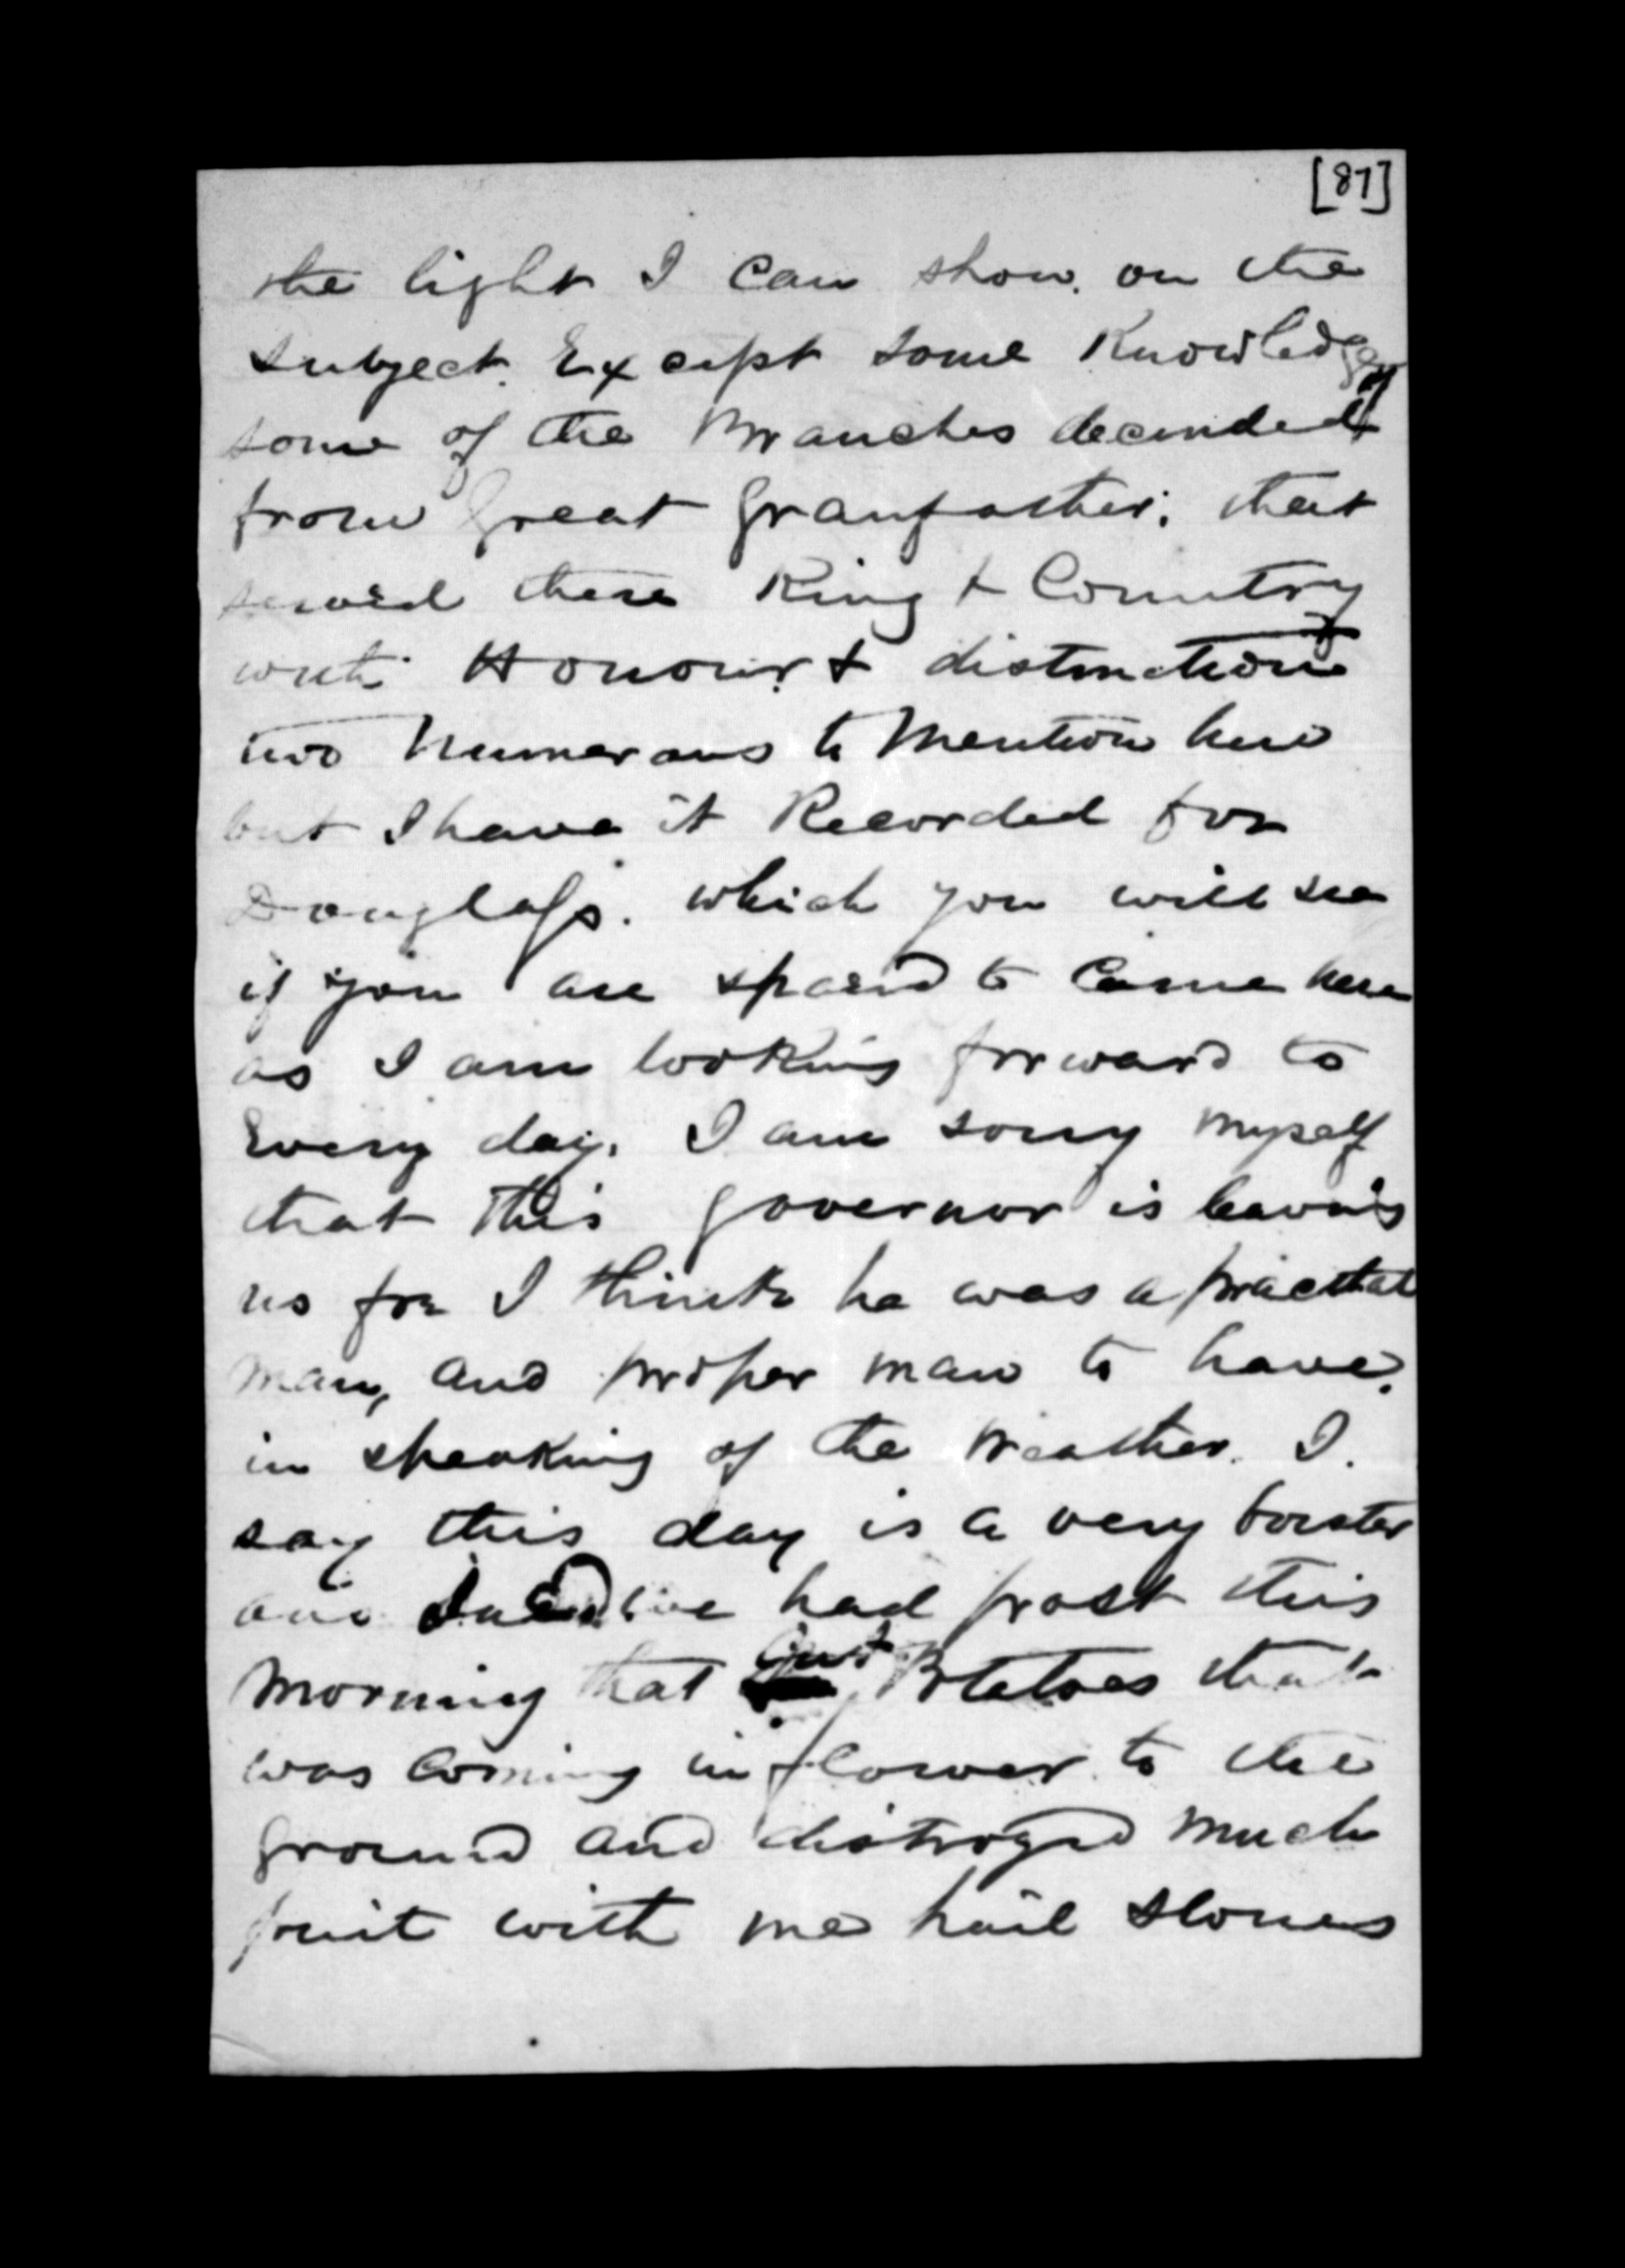 [87]
the light I can show. on the
subject. Except some Knowledge of
some of the Branches decended
from great granfather; that
served there King & Country
with Honour & distinction
two Numerous to Mention here
but I have it Recorded for
Douglass. which you will see
if you are spaird to Come here
as I am looking forward to
Every day. I am sorry myself
that this governor is leaving
us for I think he was a practical
man, and proper man to have.
in speaking of the weather. I.
say this day is a very
one we had frost this
Morning that Cut Potatoes that
was Coming in flower to the
ground and distroyed much
fruit with me hail stones